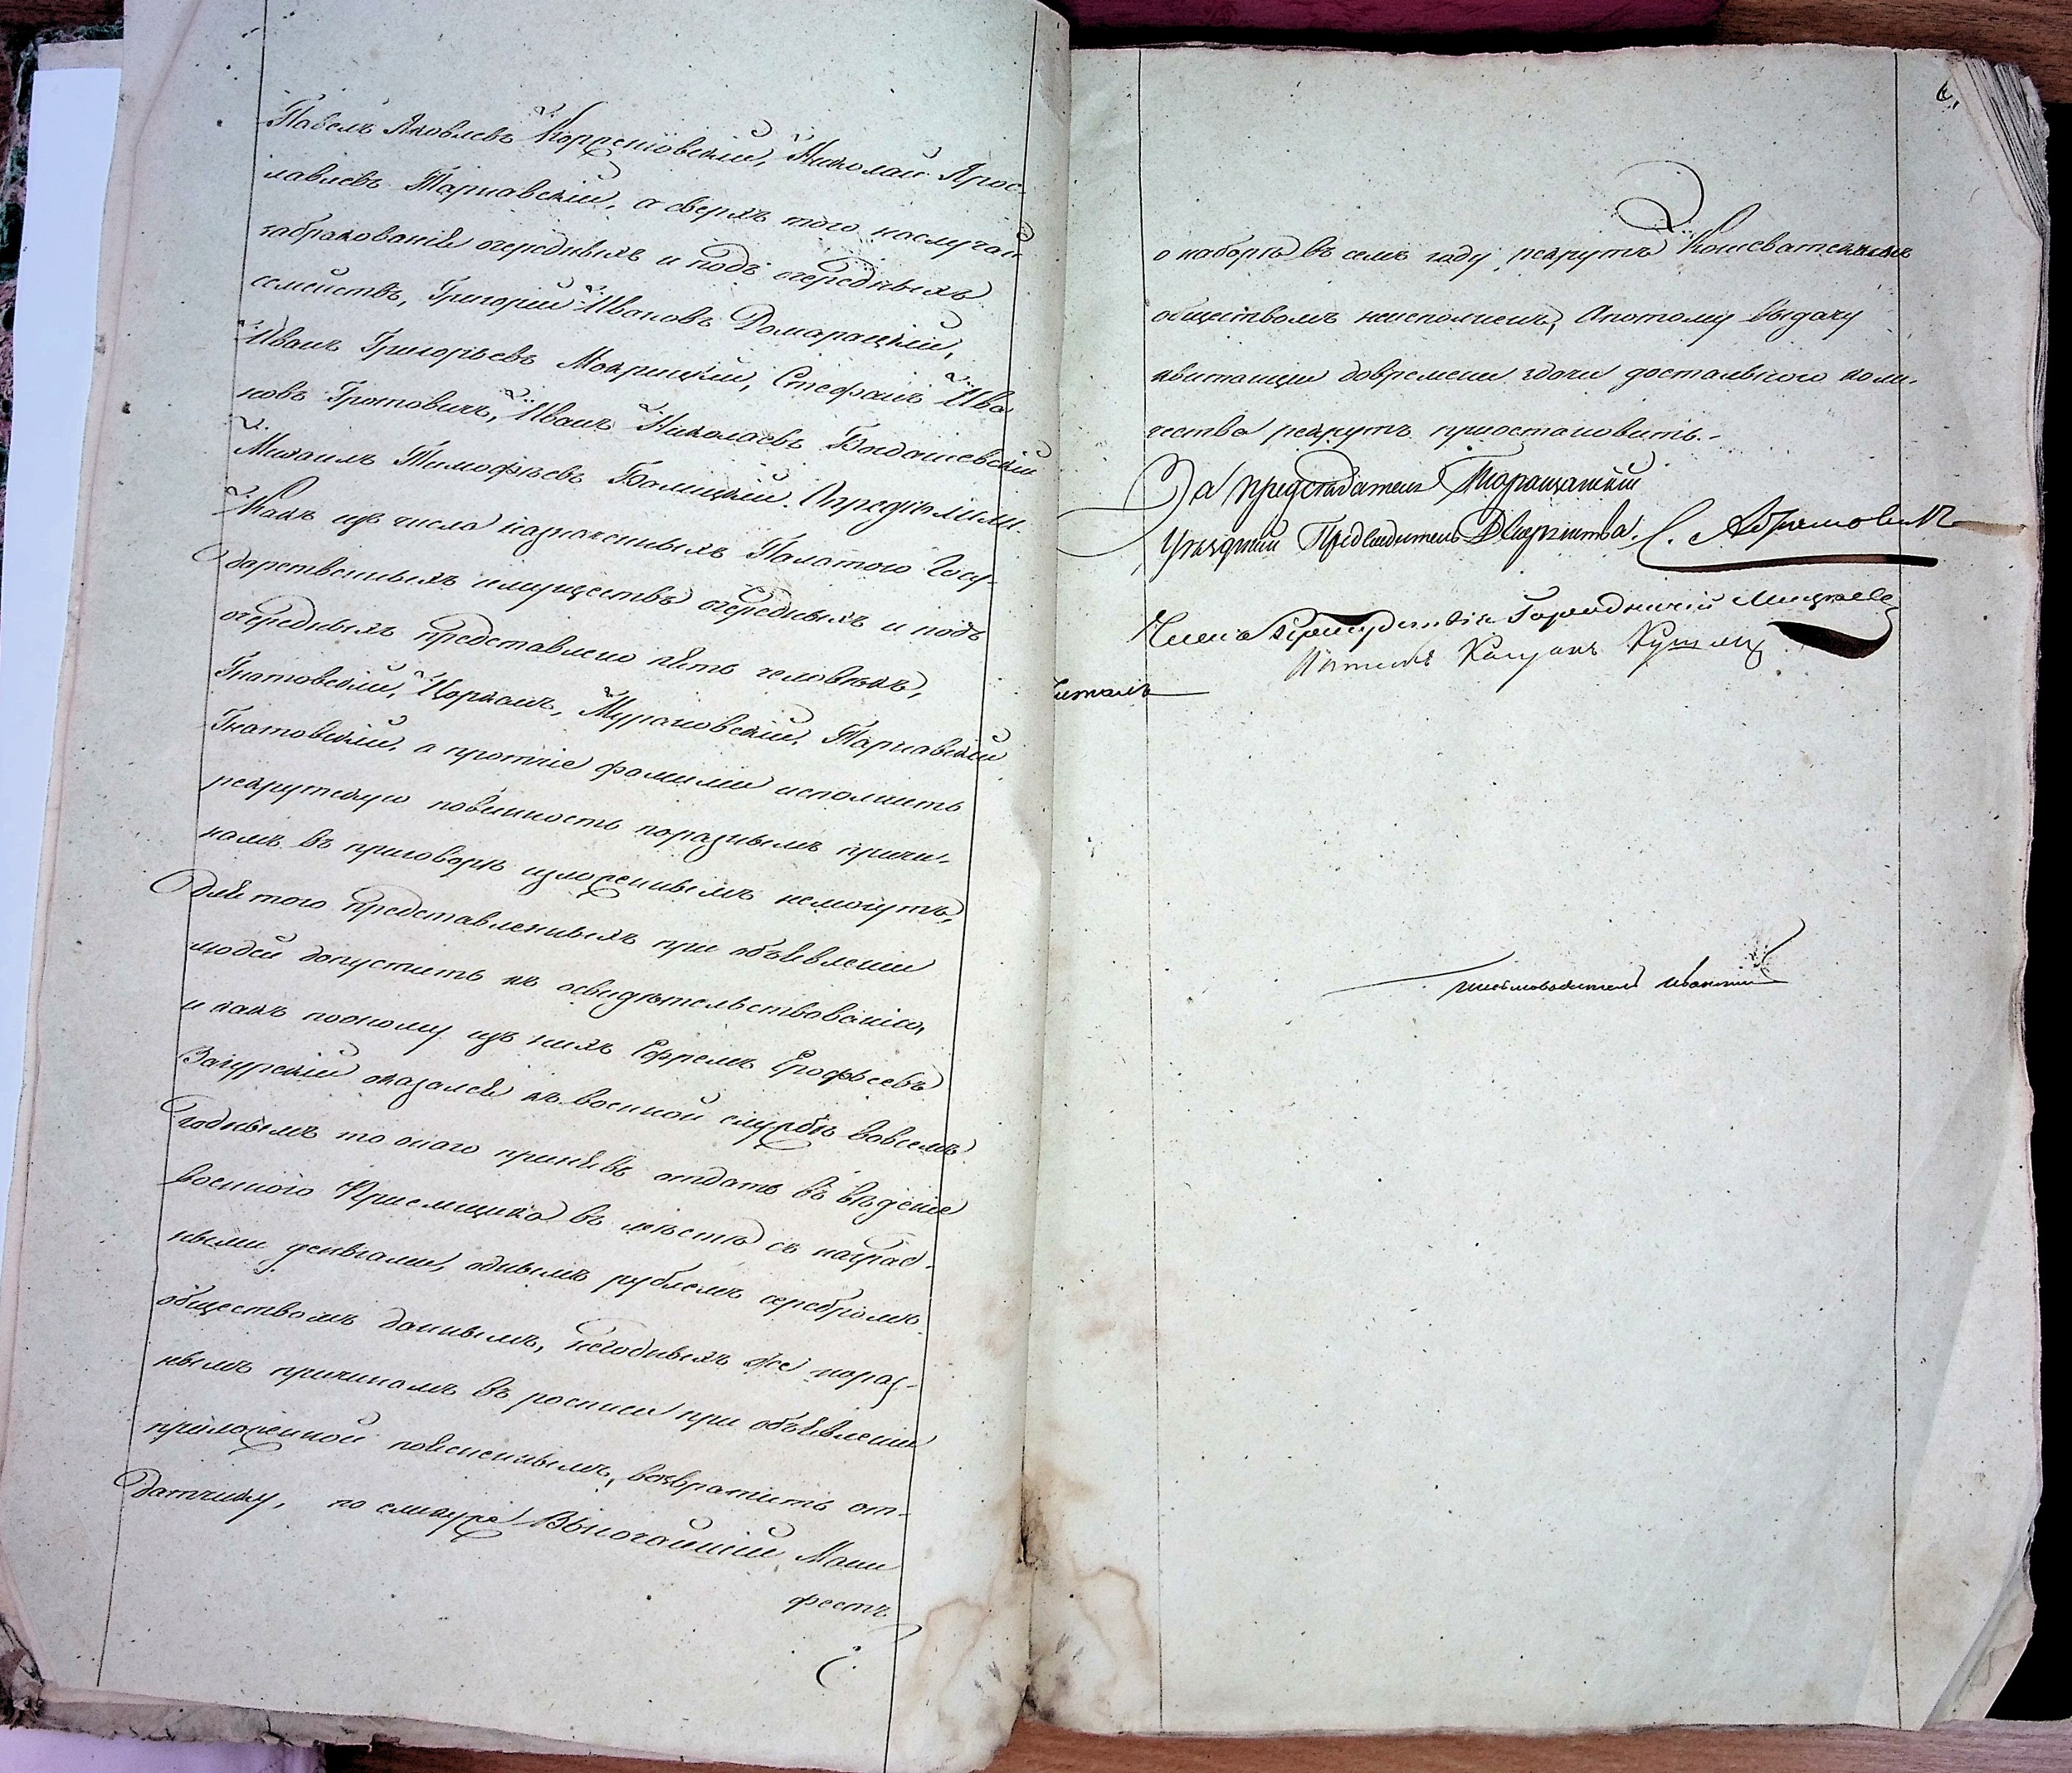 Павелъ Яковлевъ Корженіовскій, Николай Ярос-
лавлевъ Тарнавскій, а сверхъ того наслучай
забракованія очередныхъ и подъ очередныхъ
семействъ, Григорій Ивановъ Домарацкій,
Иванъ Григорьевъ Мокрицкій, Стефанъ Ива
новъ Гротовичъ, Иванъ Николаевъ Богдашевскій
Михаилъ Тимофѣевъ Балицкій. Опредѣлили:
Какъ изъ числа назначенныхъ Палатою Госу-
дарственныхъ имуществъ очередныхъ и подъ
очередныхъ представлено пять человѣкъ,
Гнатовскій, Мурановскій, Тарнавскій
Гнатовскій, а протчіе фамиліи исполнить
рекрутскую повинность поразнымъ причи-
намъ въ приговорѣ изложеннымъ немогутъ,
для того представленныхъ при объявленіи
людей допустить къ освидѣтельствованію,
и какъ поэтому изъ нихъ Ефремъ Ерофѣевъ
Загурскій оказался къ военной службѣ вовсемъ
годнымъ то оного принявъ отдать въ вѣденіе
военного Пріемщика въ мѣстѣ съ наград-
ными деньгами, однымъ рублемъ серебромъ
обществомъ даннымъ, негодныхъ же пораз-
нымъ причинамъ въ росписи при объявленіи
приложенной поясненнымъ, возвратить от-
датчику, но еликуже Высочайшій Мани
фестъ
о наборѣ въ семъ году рекрутъ Кошеватскимъ
обществомъ неисполненъ, апотому выдачу
квитанціи довремени здачи достального коли-
чества рекрутъ пріостановить.-
За председателя Таращанскій
Уѣздный Предводитель Дворянства. С. Абрамовичъ
Членъ Городничій
Капитанъ
Читалъ
Письмоводитель